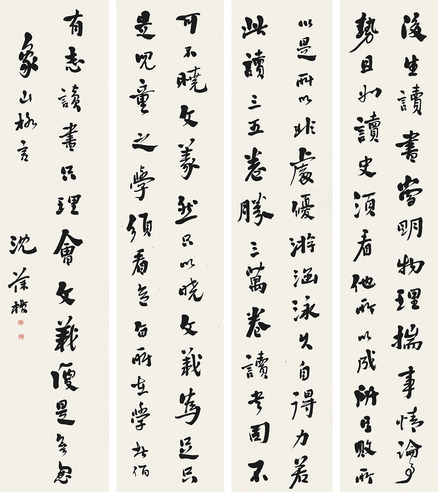 後生讀書當明物理揣事情論事
勢且如讀史須看他所以成所以敗所
以是所以非處優游涵泳久自得力若
此讀三五卷勝三萬卷讀書固不
可不曉文義然只以曉文義為足只
是兒童之學須看意旨所在學者須
有志讀書只理會文義便是無志
象山格言 沈葆楨